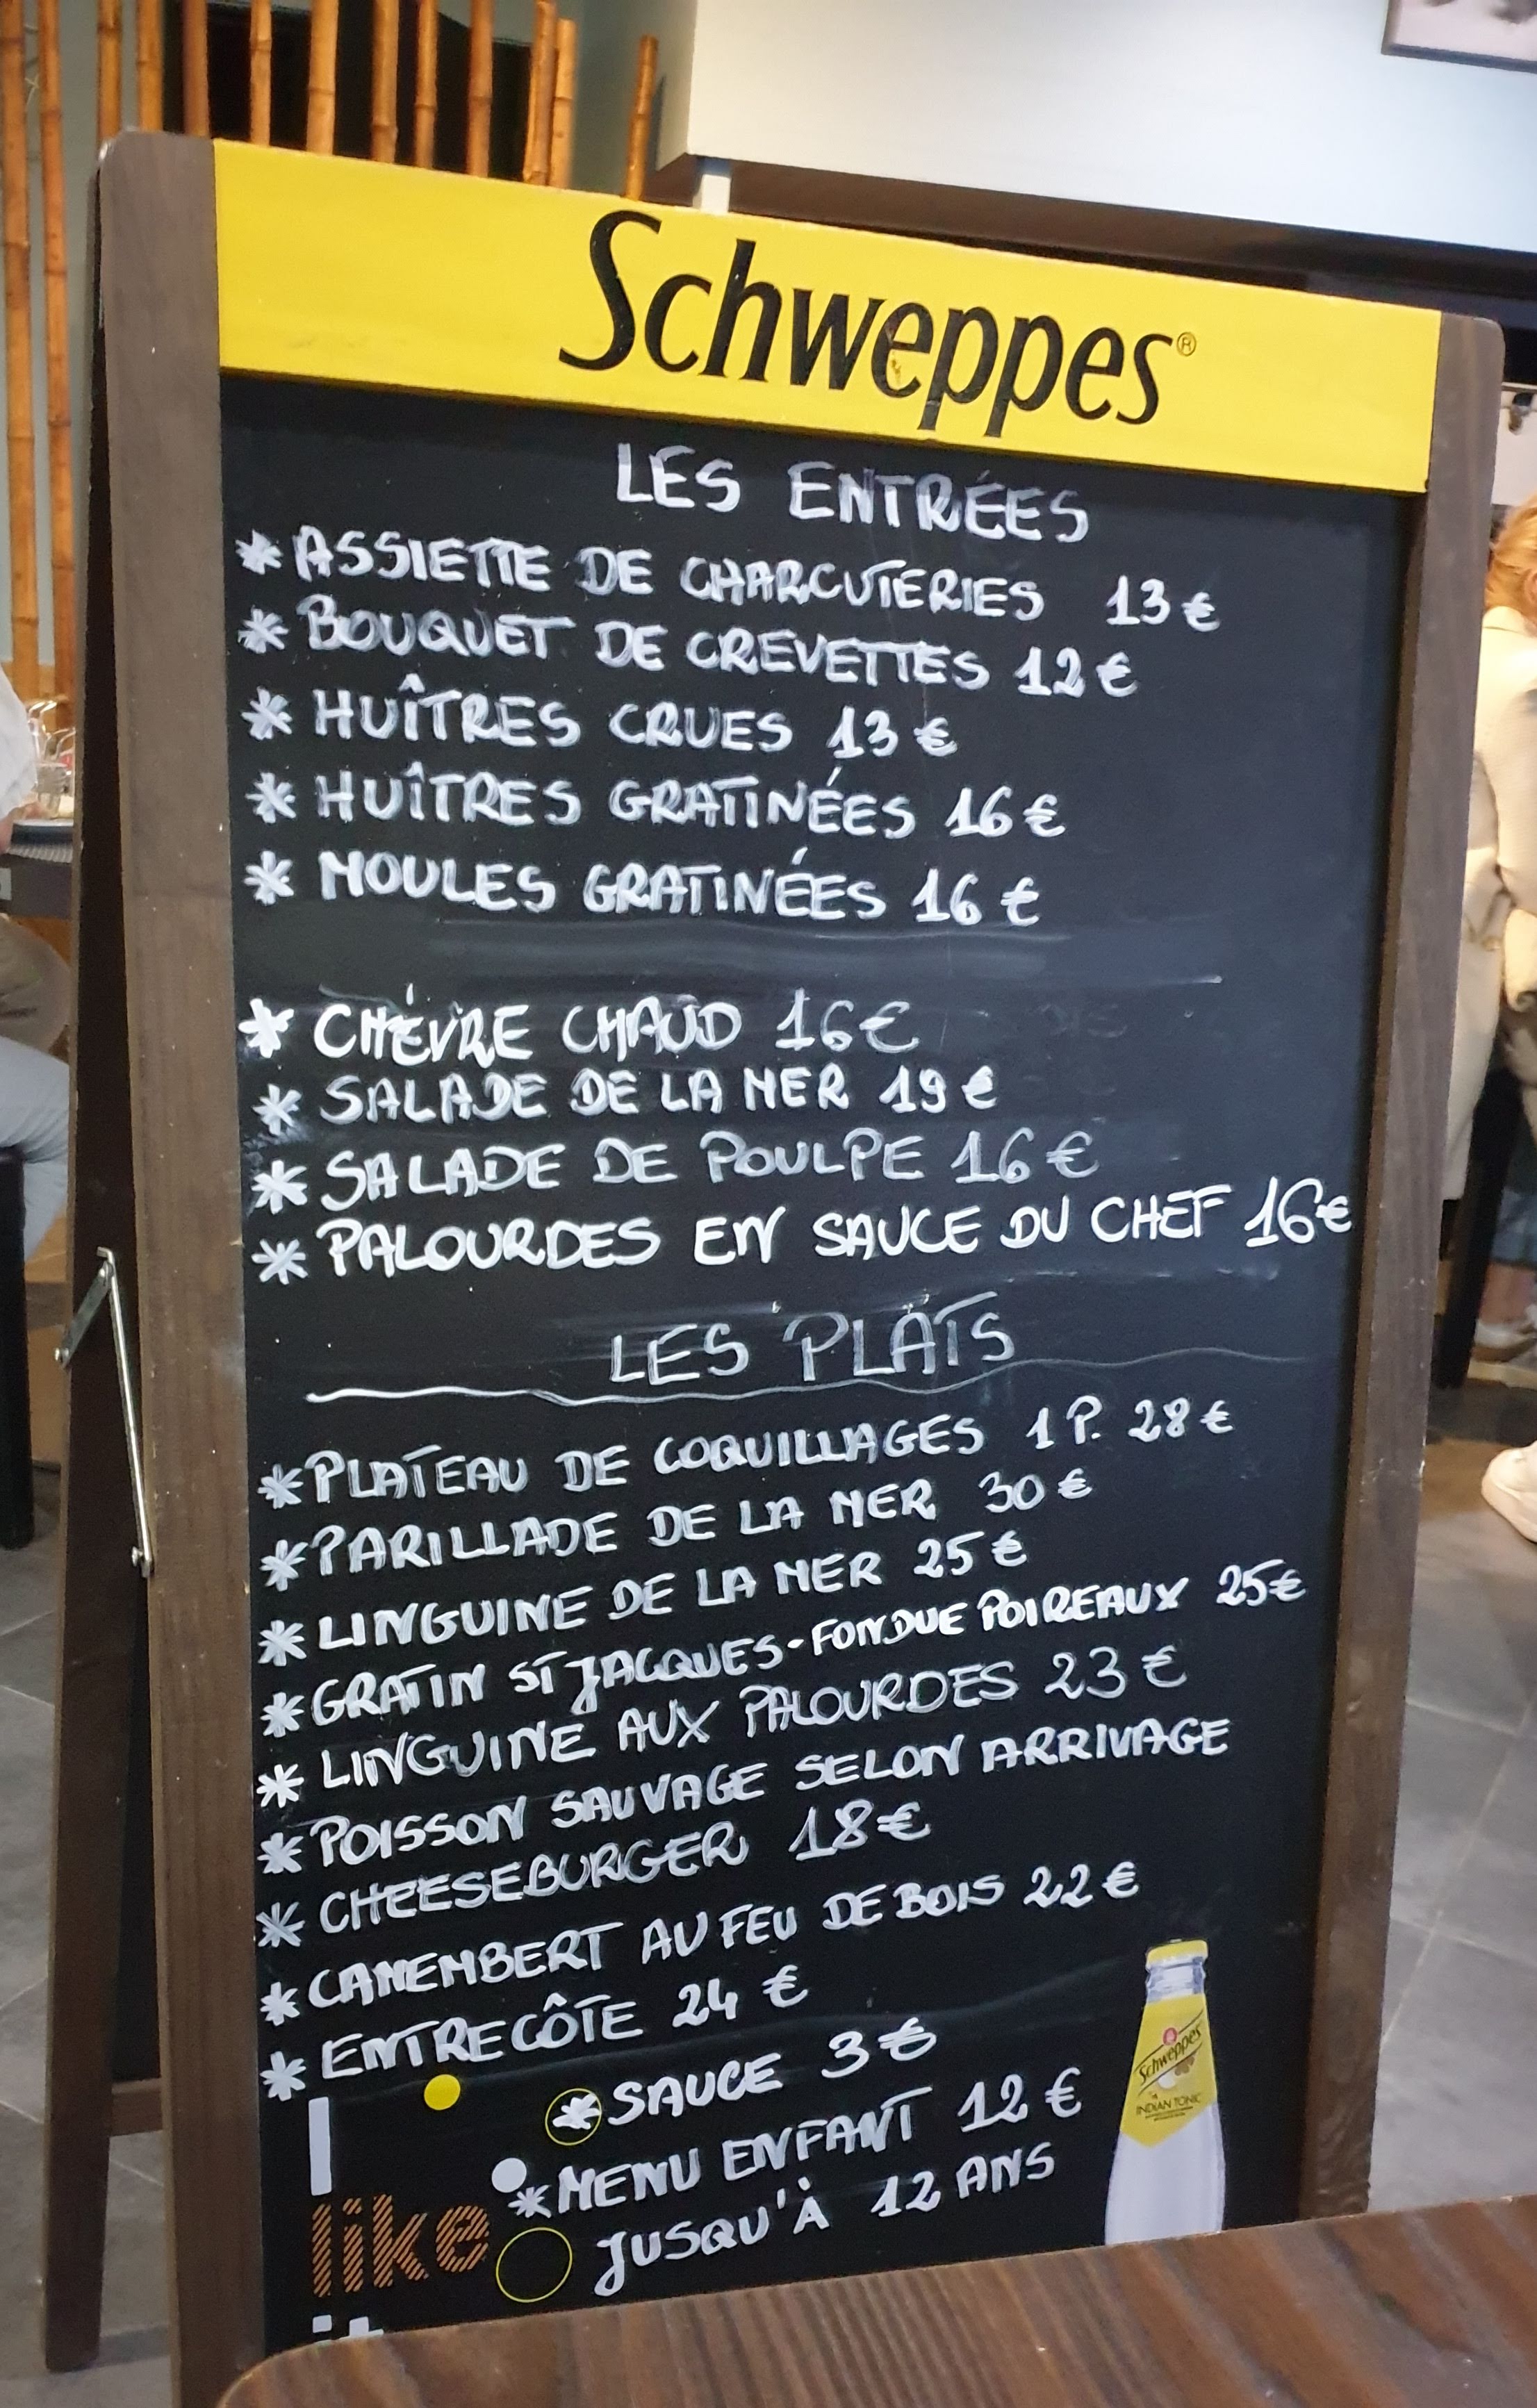 Schweppes®
LES ENTRÉES
* ASSIETTE DE CHARCUTERIES 13€
* BOUQUET DE CREVETTES 12€
* HUÎTRES CRUES 13€
* HUÎTRES GRATINÉES 16€
* MOULES GRATINÉES 16€
* CHÈVRE CHAUD 16€
* SALADE DE LA MER 19€
* SALADE DE POULPE 16€
* PALOURDES EN SAUCE DU CHEF 16€
LES PLATS
* PLATEAU DE COQUILLAGES 1P. 28€
* PARILLADE DE LA MER 30€
* LINGUINE DE LA MER 25€
* GRATIN ST JACQUES-FONDUE POIREAUX 25€
* LINGUINE AUX PALOURDES 23€
* POISSON SAUVAGE SELON ARRIVAGE
* CHEESEBURGER 18€
* CAMEMBERT AU FEU DE BOIS 22€
* ENTRECÔTE 24€
* SAUCE 3€
* MENU ENFANT 12€
JUSQU'À 12 ANS
I
like
it
Schweppes
INDIAN TONIC